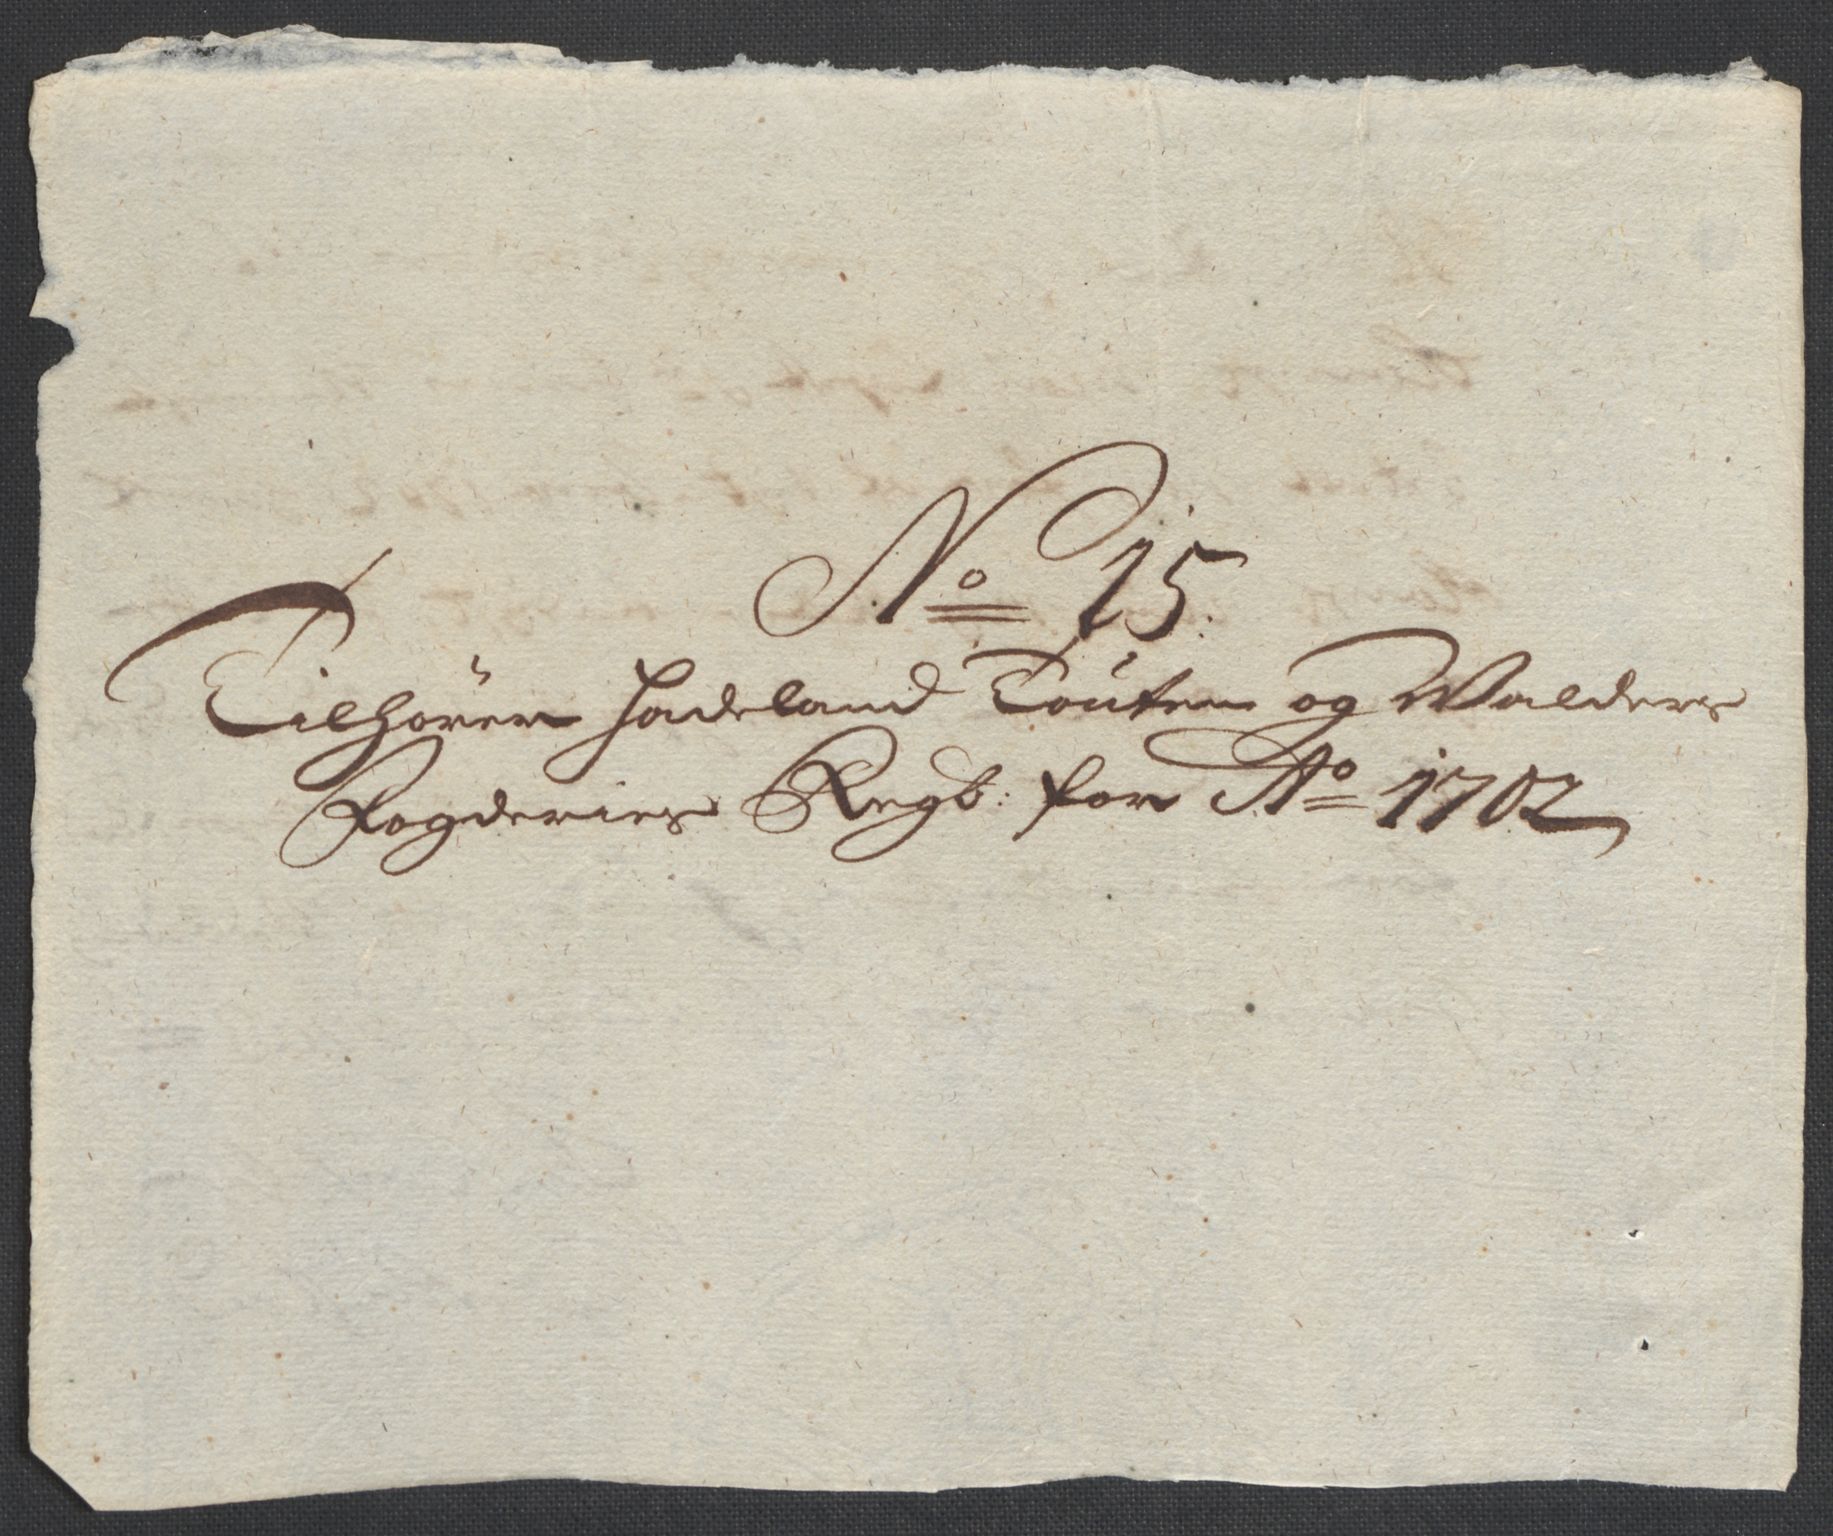 No 15.
Tilhörer Hadeland Touten og Walders
Fogderies Regb: for Ao 1702